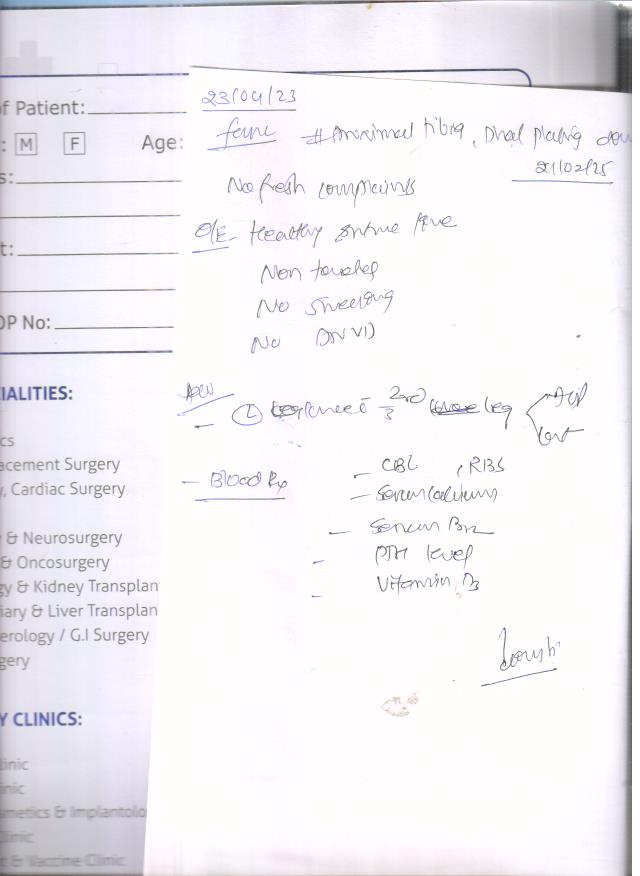 of Patient:
: M F Age:
s:
t:
OP No:
IALITIES:
cs
acement Surgery
y, Cardiac Surgery
& Neurosurgery
& Oncosurgery
gy & Kidney Transplan
iary & Liver Transplan
erology / G.I Surgery
gery
Y CLINICS:
linic
inic
smetics & Implantolo
Clinic
t & Vaccine Clinic
23/04/23
# Proximal tibia, Dual plating
21/02/25
No fresh complaints
O/E - Healthy
Non
No swelling
No DNVD
L knee leg AP
Lat
- Blood
- CBC , RBS
- Serum Calcium
- Serum B12
- PTH level
- Vitamin D3